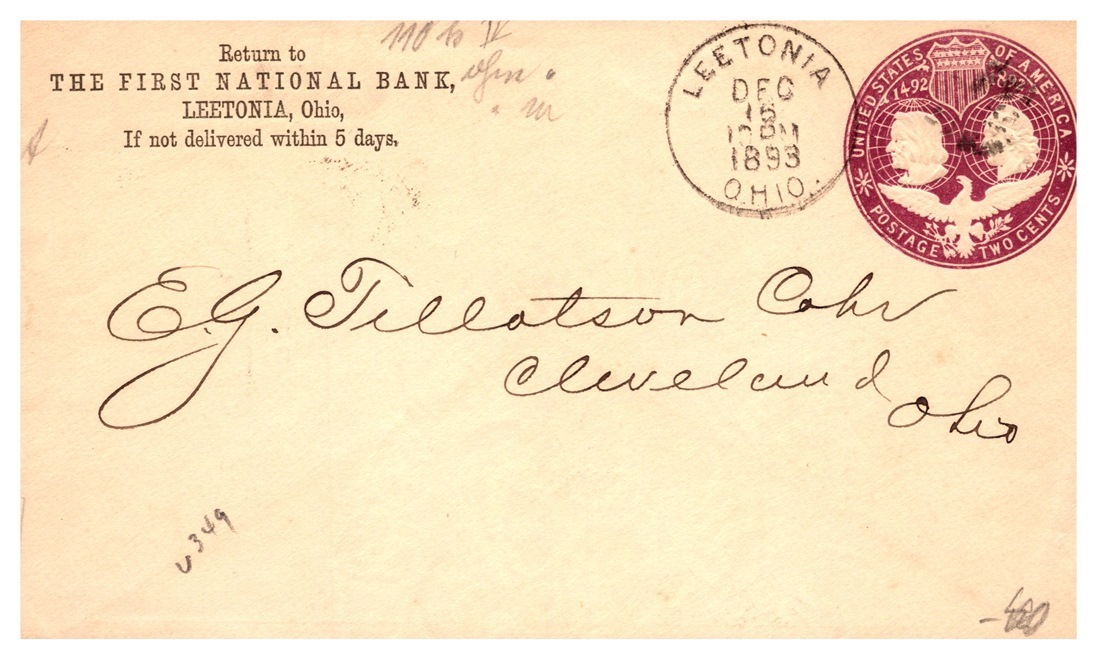 Return to
THE FIRST NATIONAL BANK,
LEETONIA, Ohio,
If not delivered within 5 days.
LEETONIA
DEC
15
12 PM
1893
OHIO.
UNITED STATES OF AMERICA
1492 1892
POSTAGE TWO CENTS
E.G. Tillotson Cohr
Cleveland
Ohio
U349